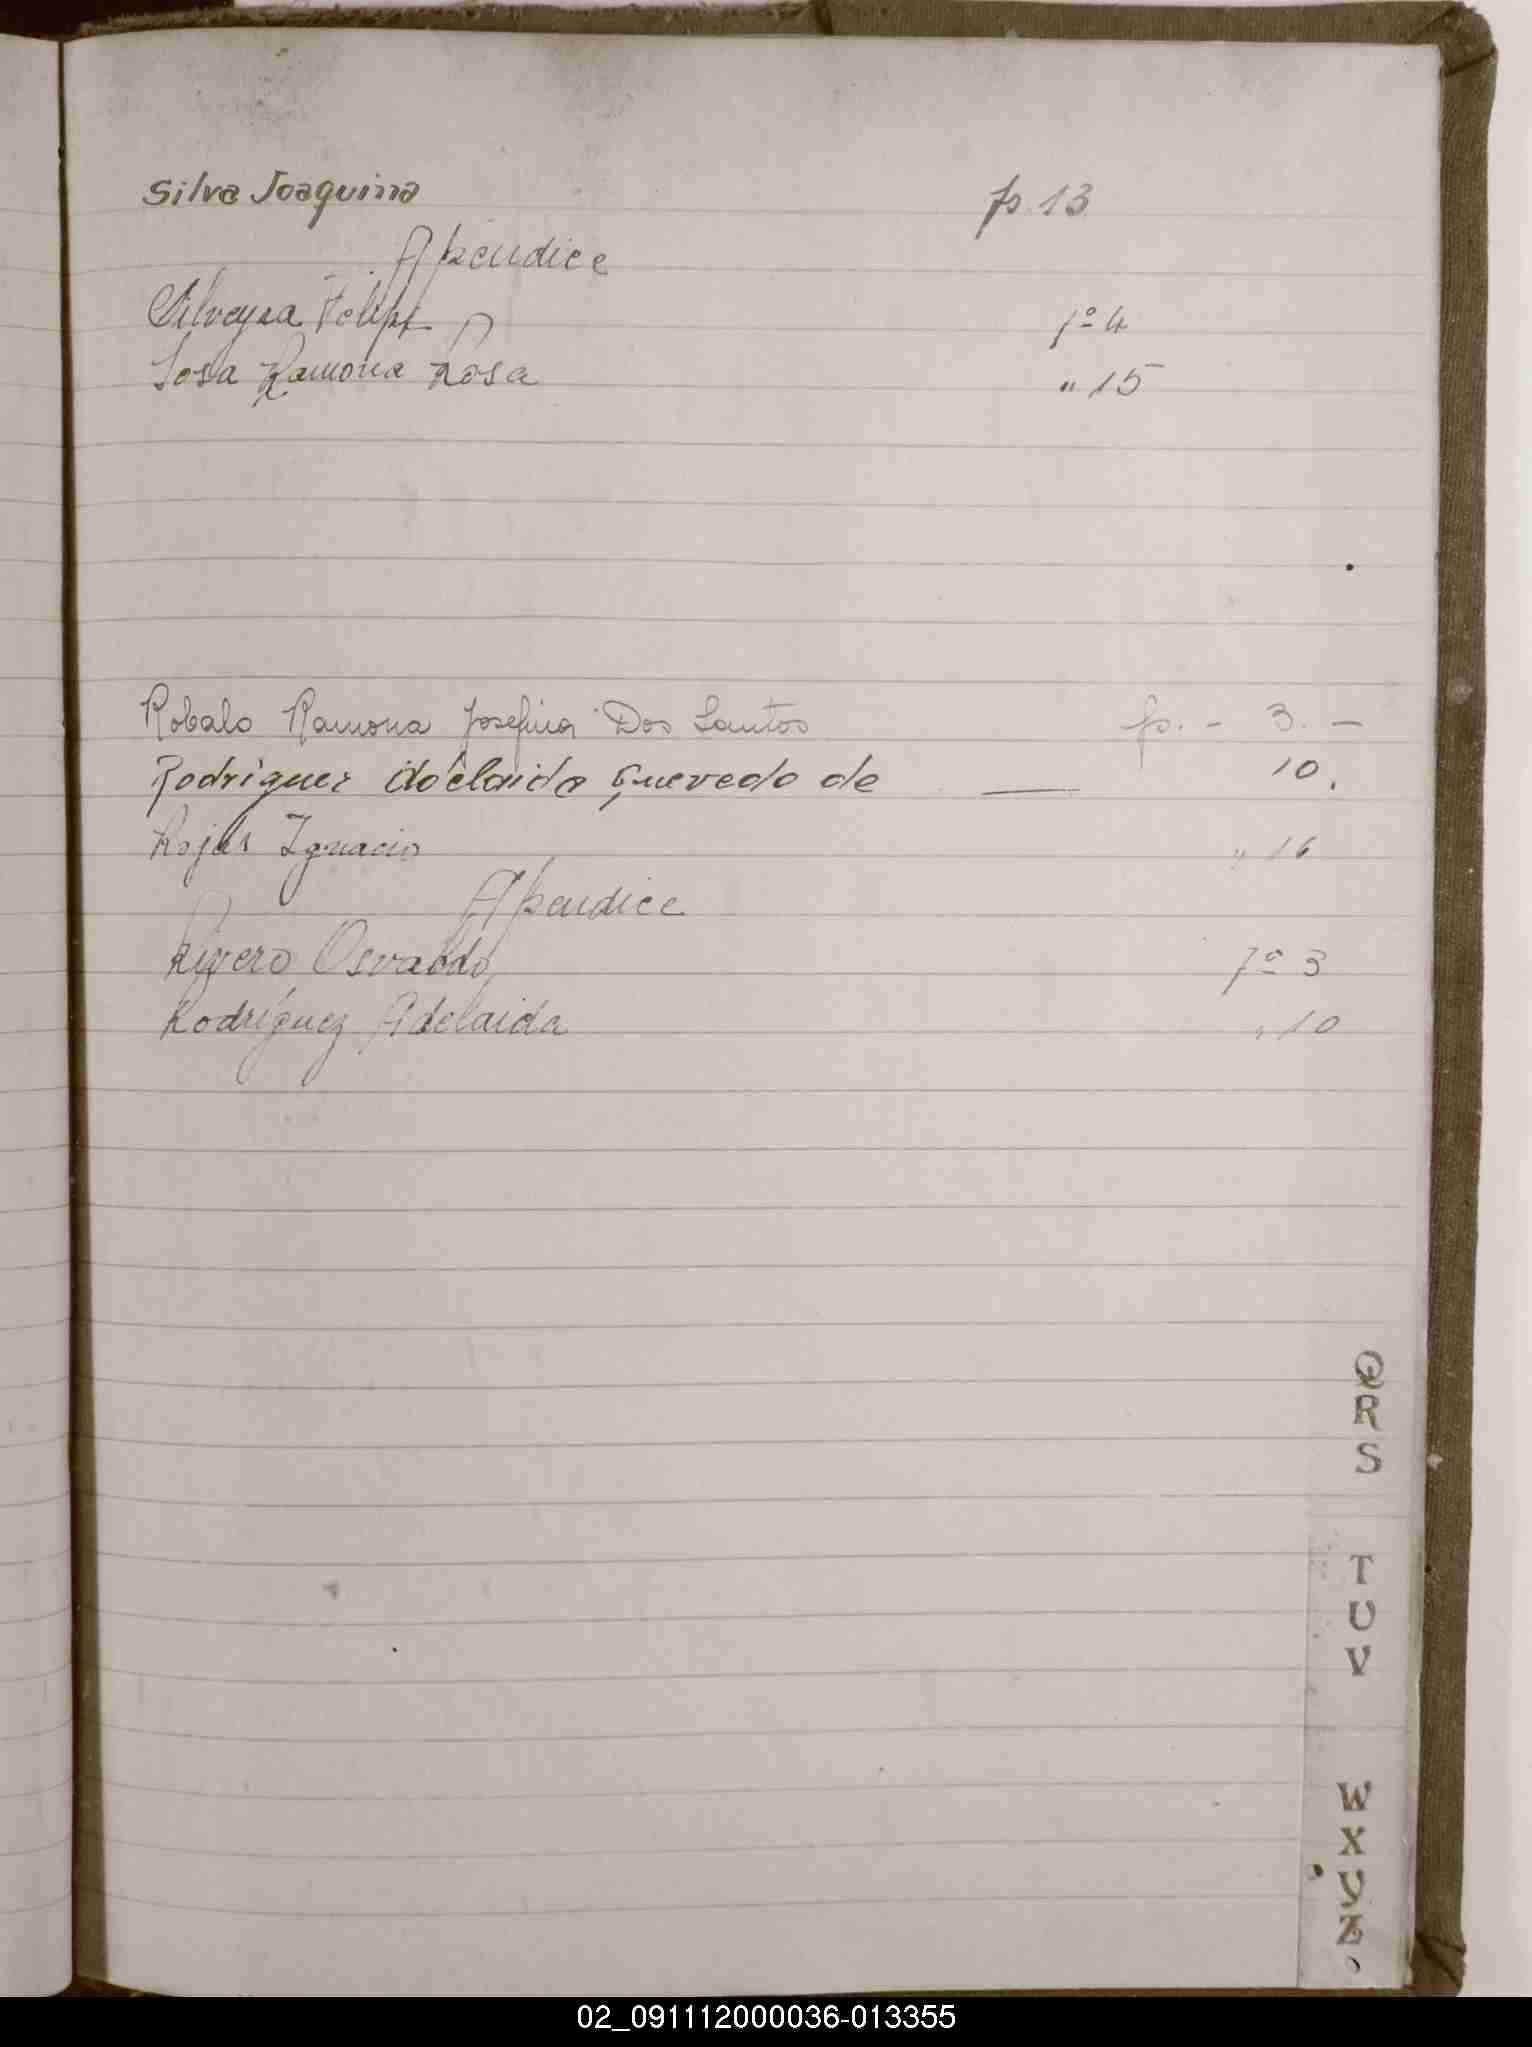 Silva Joaquina fs. 13
Apendice
Silveyra Felipe fº 4
Sosa Ramona Rosa " 15
Robalo Ramona Josefina Dos Santos fs. - 3. -
Rodriguez Adelaida Quevedo de — 10.
Rojas Ignacio " 16
Apendice
Rivero Osvaldo fº 3
Rodríguez Adelaida " 10
Q
R
S
T
U
V
W
X
Y
Z
02_091112000036-013355